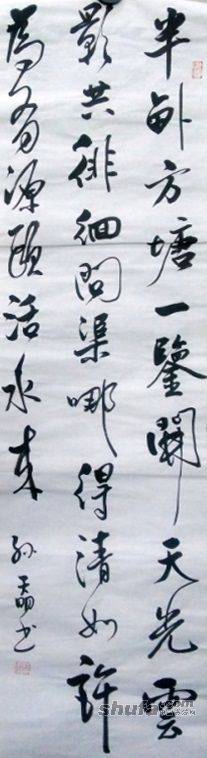 半畝方塘一鑒開天光雲
影共徘徊問渠哪得清如許
為有源頭活水來